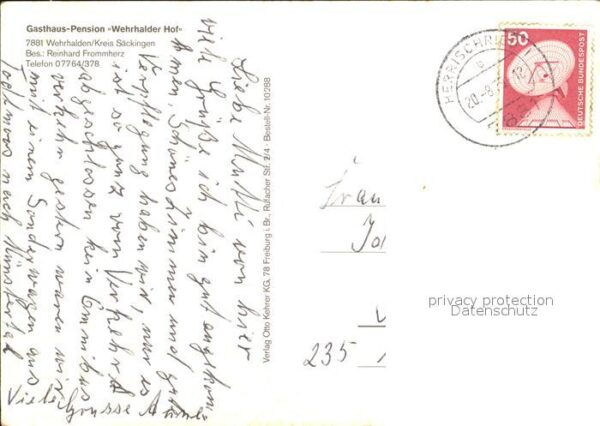 Gasthaus-Pension »Wehrhalder Hof«
7881 Wehrhalden/Kreis Säckingen
Bes.: Reinhard Frommherz
Telefon 07764/378
Liebe Mutti von hier
viele Grüße ich bin gut angekom
men, Schönes Zimmer und gute
Verpflegung haben wir, nur es
ist so ganz vom Verkehr
abgeschlossen kein Omnibus
verkehr gestern waren wir
mit einem Sonderwagen aus
nach Münstertal
Viele Grüsse
Verlag Otto Kehrer KG, 78 Freiburg i. Br., Rufacher Str. 2/4 · Bestell-Nr. 10288
HERRISCHRIED
20.-8.
50
DEUTSCHE BUNDESPOST
Frau
235
privacy protection
Datenschutz